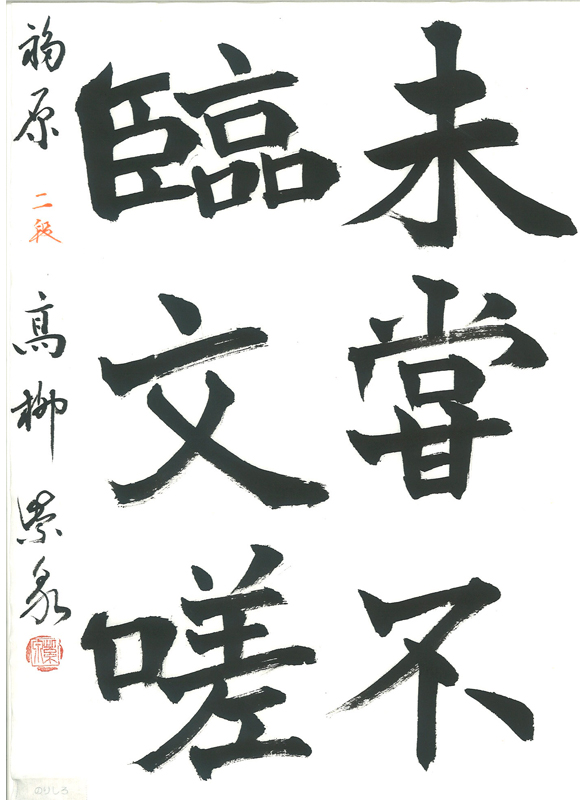 未嘗不
臨文嗟
福原 二段 高柳 紫泉
のりしろ